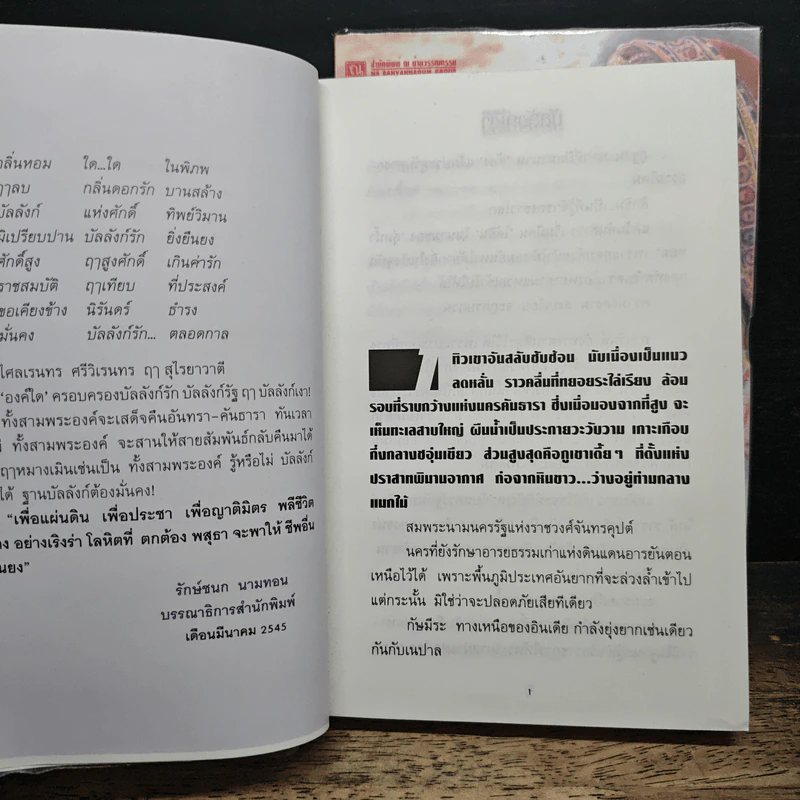 สำนักพิมพ์ ณ บ้านวรรณกรรม
NA BANVANNAGUM GROUP
กลิ่นหอม ใด...ใด ในพิภพ
ฤๅลบ กลิ่นดอกรัก บานสล้าง
บัลลังก์ แห่งศักดิ์ ทิพย์วิมาน
มิเปรียบปาน บัลลังก์รัก ยิ่งยืนยง
ศักดิ์สูง ฤๅสูงศักดิ์ เกินค่ารัก
ราชสมบัติ ฤๅเทียบ ที่ประสงค์
ขอเคียงข้าง นิรันดร์ ธำรง
มั่นคง บัลลังก์รัก... ตลอดกาล
ไศลเรนทร ศรีวิเรนทร ฤๅ สุไรยาวาตี
‘องค์ใด’ ครอบครองบัลลังก์รัก บัลลังก์รัฐ ฤๅ บัลลังก์เงา!
ทั้งสามพระองค์จะเสด็จคืนอันทรา-คันธารา ทันเวลา
ทั้งสามพระองค์ จะสานให้สายสัมพันธ์กลับคืนมาได้
ฤๅหมางเมินเช่นเป็น ทั้งสามพระองค์ รู้หรือไม่ บัลลังก์
ได้ ฐานบัลลังก์ต้องมั่นคง!
“เพื่อแผ่นดิน เพื่อประชา เพื่อญาติมิตร พลีชีวิต
อย่างเริงร่า โลหิตที่ ตกต้อง พสุธา จะพาให้ ชีพอื่น
ยืนยง”
รักษ์ชนก นามทอน
บรรณาธิการสำนักพิมพ์
เดือนมีนาคม 2545
1
ทิวเขาอันสลับซับซ้อน นับเนื่องเป็นแนว
ลดหลั่น ราวคลื่นที่ทยอยระไล่เรียง ล้อม
รอบที่ราบกว้างแห่งนครคันธารา ซึ่งเมื่อมองจากที่สูง จะ
เห็นทะเลสาบใหญ่ ผืนน้ำเป็นประกายวะวับวาม เกาะเกือบ
กึ่งกลางชอุ่มเขียว ส่วนสูงสุดคือภูเขาเตี้ยๆ ที่ตั้งแห่ง
ปราสาทพิมานอากาศ ก่อจากหินขาว...ว่างอยู่ท่ามกลาง
แมกไม้
สมพระนามนครรัฐแห่งราชวงศ์จันทรคุปต์
นครที่ยังรักษาอารยธรรมเก่าแห่งดินแดนอารยันตอน
เหนือไว้ได้ เพราะพื้นภูมิประเทศอันยากที่จะล่วงล้ำเข้าไป
แต่กระนั้น มิใช่ว่าจะปลอดภัยเสียทีเดียว
กัษมีระ ทางเหนือของอินเดีย กำลังยุ่งยากเช่นเดียว
กันกับเนปาล
1